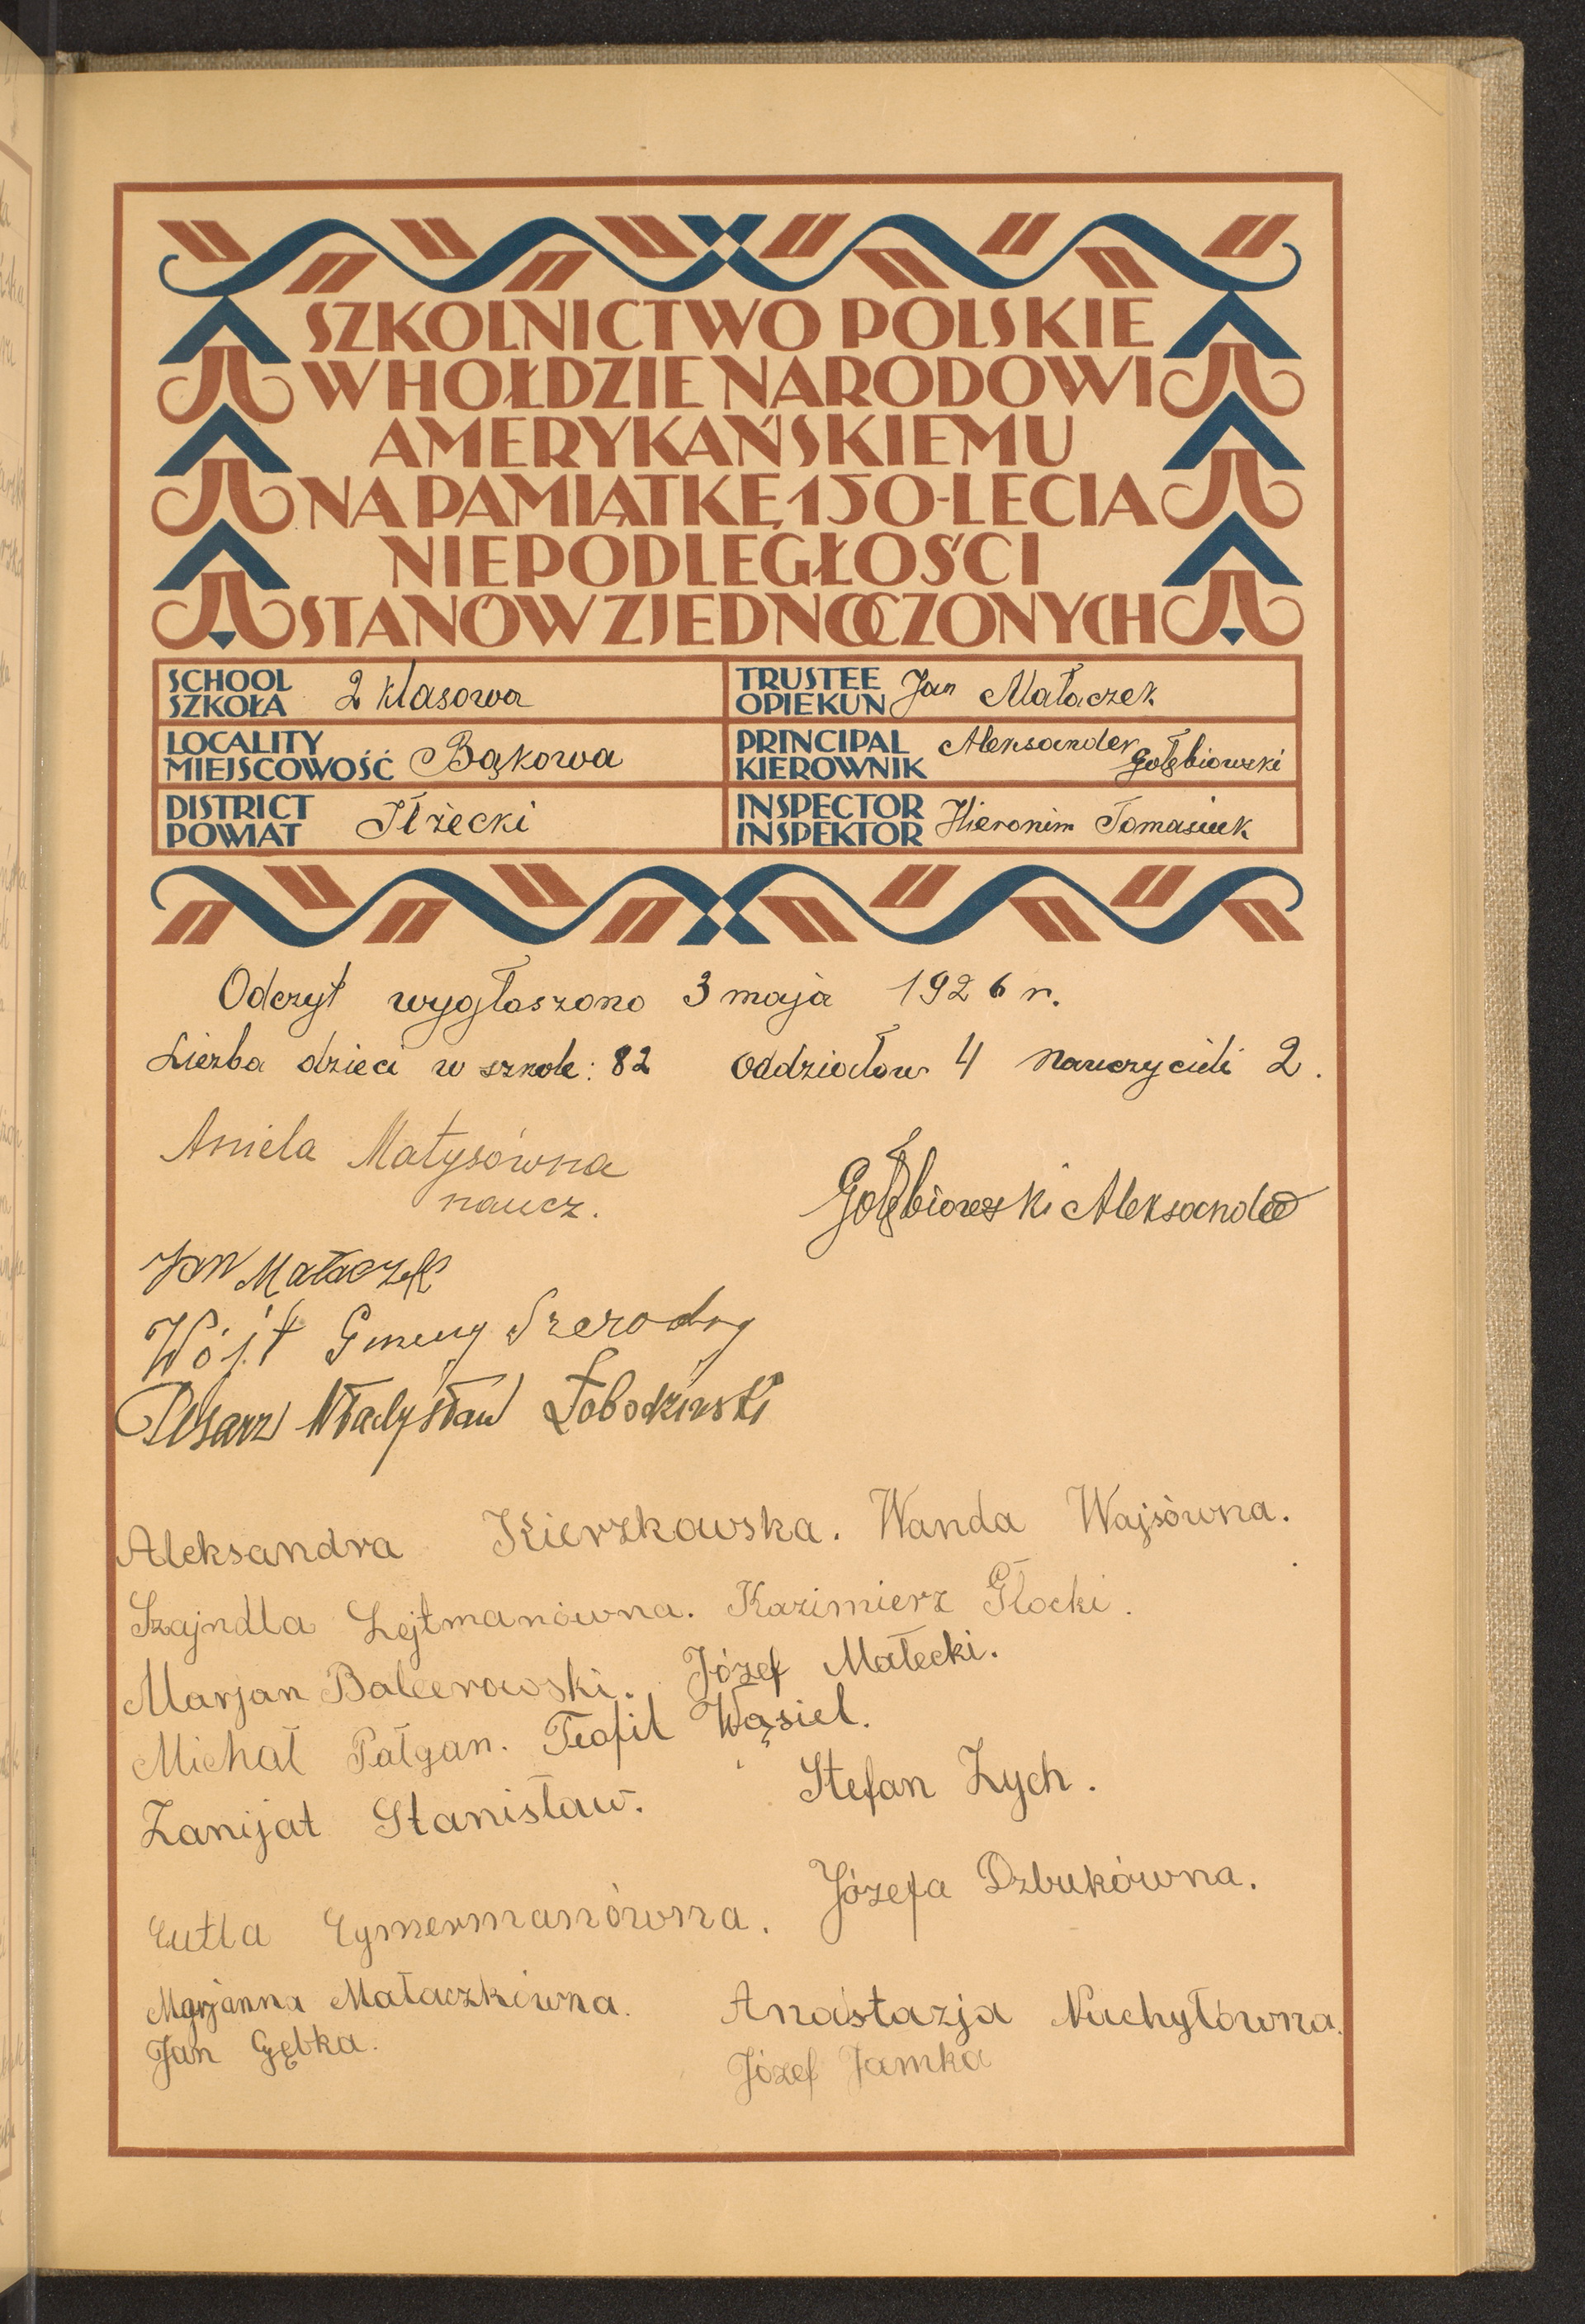 SZKOLNICTWO POLSKIE
W HOŁDZIE NARODOWI
AMERYKAŃSKIEMU
NA PAMIĄTKĘ 150-LECIA
NIEPODLEGŁOŚCI
STANÓW ZJEDNOCZONYCH
SCHOOL
SZKOŁA 2 klasowa
TRUSTEE
OPIEKUN Jan Małaczek
LOCALITY
MIEJSCOWOŚĆ Bąkowa
PRINCIPAL
KIEROWNIK Aleksander Gołębiowski
DISTRICT
POWIAT Iłżecki
INSPECTOR
INSPEKTOR Hieronim Tomasiuk
Odczyt wygłoszono 3 maja 1926 r.
Liczba dzieci w szkole: 82 oddziałów 4 nauczycieli 2.
Aniela Małysówna
naucz.
Gołębiowski Aleksander
Jan Małaczek
Wójt Gminy
Pisarz Władysław Łobodziński
Aleksandra Kierzkowska. Wanda Wajsówna.
Szajndla Lejtmanówna. Kazimierz Głocki.
Marjan Balcerowski. Józef Małecki.
Michał Pałgan. Teofil Wąsiel.
Zanijat Stanisław. Stefan Zych.
Józefa Dzbukówna.
Cutla Cymermanówna.
Marjanna Małaczkówna. Anastazja Nachyłówna.
Jan Gębka. Józef Jamka